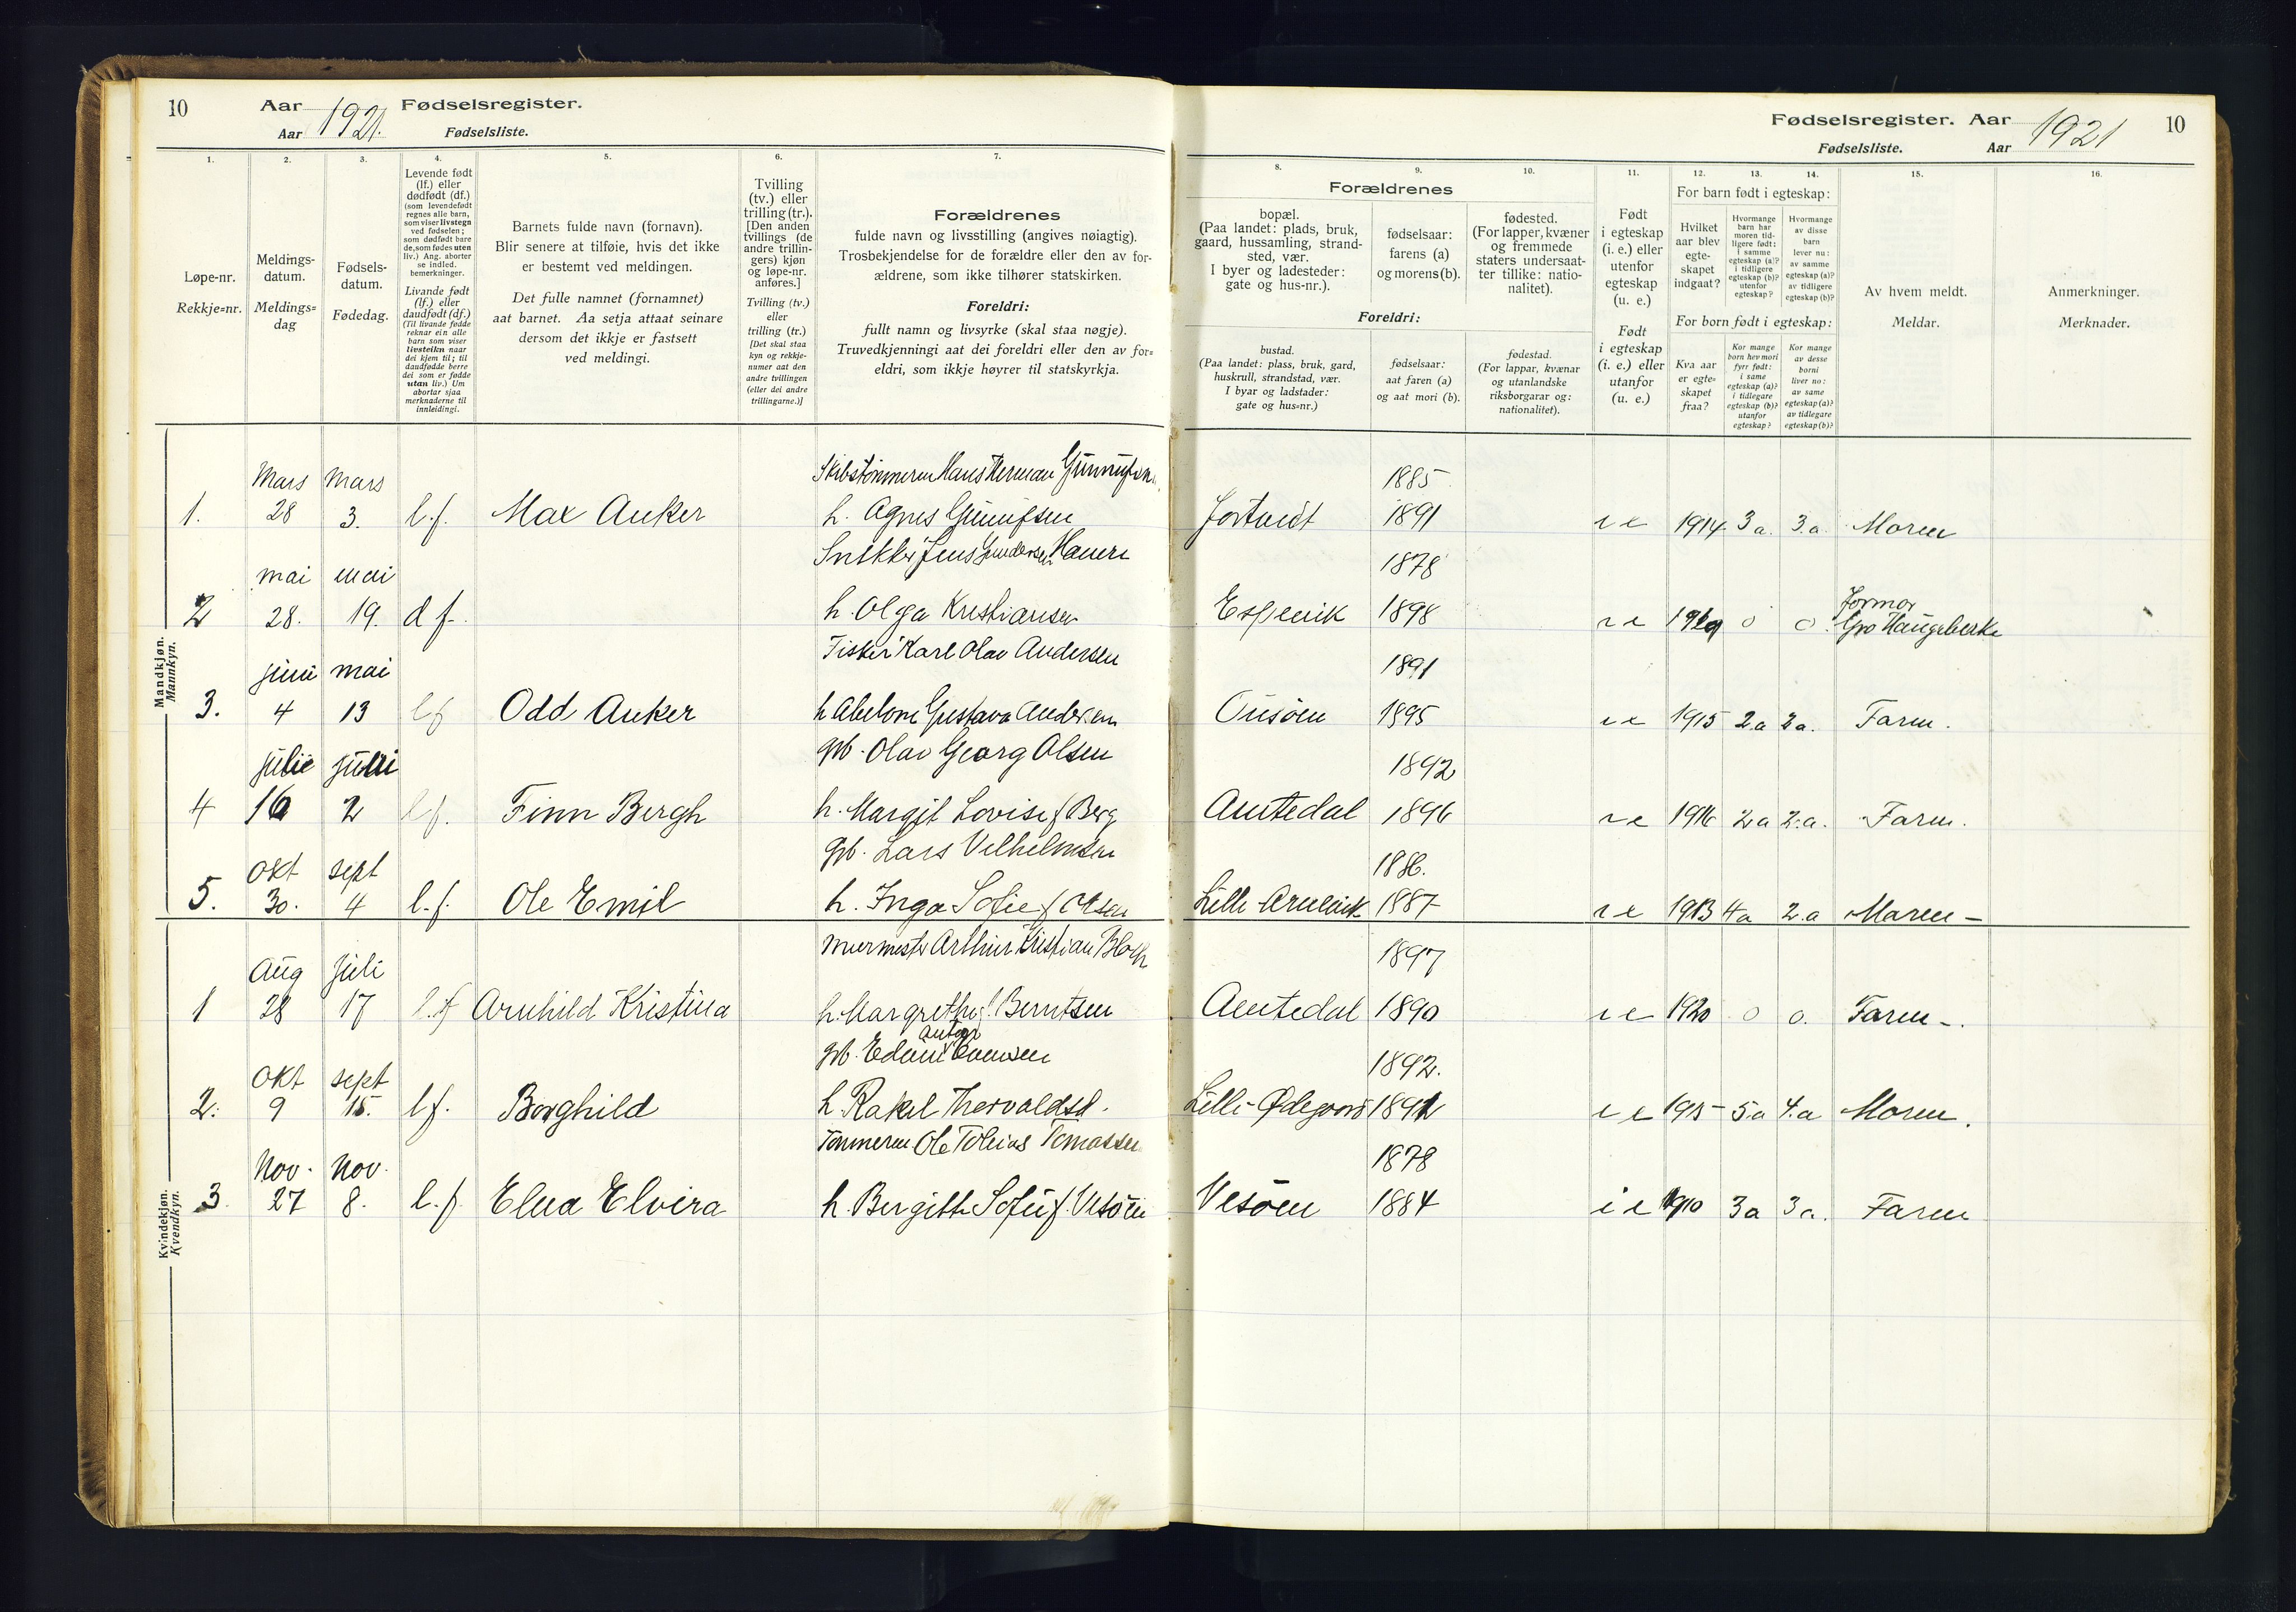 10 Aar 1921. Fødselsregister.
Aar Fødselsliste.
1. 2. 3. 4. 5. 6. 7.
Løpe-nr.
Rekkje=nr.
Meldings-
datum.
Meldings=
dag
Fødsels-
datum.
Fødedag.
Levende født
(lf.) eller
dødfødt (df.)
(som levendefødt
regnes alle barn,
som viser livstegn
ved fødselen;
som dødfødt bare
de, som fødes uten
liv.) Ang. aborter
se indled.
bemerkninger.
Livande født
(lf.) eller
daudfødt (df.)
(Til livande fødde
reknar ein alle
barn som viser
livsteikn naar
dei kjem til; til
daudfødde berre
dei som er fødde
utan liv.) Um
abortar sjaa
merknaderne til
innleidingi.
Barnets fulde navn (fornavn).
Blir senere at tilføie, hvis det ikke
er bestemt ved meldingen.
Det fulle namnet (fornamnet)
aat barnet. Aa setja attaat seinare
dersom det ikkje er fastsett
ved meldingi.
Tvilling
(tv.) eller
trilling (tr.).
[Den anden
tvillings (de
andre trillin-
gers) kjøn
og løpe-nr.
anføres.]
Tvilling (tv.)
eller
trilling (tr.)
[Det skal staa
kyn og rekkje-
numer aat den
andre tvillingen
(eller dei andre
trillingarne.)]
Forældrenes
fulde navn og livsstilling (angives nøiagtig).
Trosbekjendelse for de forældre eller den av for-
ældrene, som ikke tilhører statskirken.
Foreldri:
fullt namn og livsyrke (skal staa nøgje).
Truvedkjenningi aat dei foreldri eller den av for=
eldri, som ikkje høyrer til statskyrkja.
Fødselsregister. Aar 1921 10
Fødselsliste. Aar
8. 9. 10. 11. 12. 13. 14. 15. 16.
Forældrenes
bopæl.
(Paa landet: plads, bruk,
gaard, hussamling, strand-
sted, vær.
I byer og ladesteder:
gate og hus-nr.).
fødselsaar:
farens (a)
og morens (b).
fødested.
(For lapper, kvæner
og fremmede
staters undersaat-
ter tillike: natio-
nalitet).
Foreldri:
bustad.
(Paa landet: plass, bruk, gard,
huskrull, strandstad, vær.
I byar og ladstader:
gate og hus=nr.)
fødselsaar:
aat faren (a)
og aat mori (b).
fødestad.
(For lappar, kvænar
og utanlandske
riksborgarar og:
nationalitet).
Født
i egteskap
(i. e.) eller
utenfor
egteskap
(u. e.)
Født
i egteskap
(i. e.) eller
utanfor
(u. e.)
For barn født i egteskap:
Hvilket
aar blev
egte-
skapet
indgaat?
Hvormange
barn har
moren tid-
ligere født:
i samme
egteskap (a)?
i tidligere
egteskap (b)?
utenfor
egteskap?
Hvormange
av disse
barn
lever nu:
av samme
egteskap (a)?
av tidligere
egteskap (b)?
For born født i egteskap:
Kva aar
er egte=
skapet
fraa?
Kor mange
born hev mori
fyrr født:
i same
egteskap (a)?
i tidlegare
egteskap (b)?
utanfor
egteskap?
Kor mange
av desse
borni
liver no:
av same
egteskap (a)?
av tidlegare
egteskap (b)?
Av hvem meldt.
Meldar.
Anmerkninger.
Merknader.
Mandkjøn.
Mannkyn.
Mars Mars Skibstømmerm Hans Herman 1885
1. 28 3. l.f. Max Anker h. Agnes 1891 i e 1914 3 a. 3.a. Moren
mai mai Snekker Jens Gundersen 1878
2 28. 19. d f. h. Olga Kristiansen Espevik 1898 i e 0 0. Formor Gro
juni mai Fisker Karl Olav Andersen 1891
3. 4 13 lf Odd Anker h Abelone Gustava Andersen 1895 i e 1915 2.a 2a. Faren.
julie juli gb. Olav Georg Olsen 1892
4 16 2 lf. Finn Bergh h. Margit Lovise f Berg Amtedal 1896 i e 1916 2a 2.a. Faren.
okt sept gb. Lars Vilhelmsen 1886.
5. 30. 4 l.f. Ole Emil h. Inga Sofie f Olsen Lille 1887 i e 1913 4a 2.a Moren –
Kvindekjøn.
Kvendkyn.
Aug juli murmester Arthur Kristian 1897
1 28 17 l.f Arnhild Kristina h. Margrethe f. Berntsen Amtedal 1890 i e 1920 0 0. Faren –.
Anton
okt sept gb. 1892.
2. 9 15. lf. Borghild h. Rakel Thorvaldsd. Lille Ødegaard i e 1915 5a 4.a Moren.
Nov. Nov. Tømmerm. Ole Tobias Tomassen 1878
3. 27 8. l.f. Elna Elvira h. Bergitte Sofie f. Vesøen Vesøen 1884 i e 1910 3a 3a. Faren